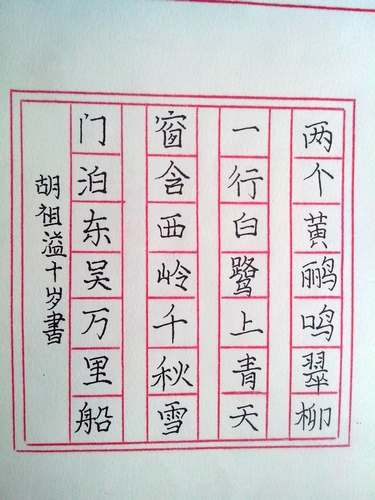 两个黄鹂鸣翠柳
一行白鹭上青天
窗含西岭千秋雪
门泊东吴万里船
胡祖溢十岁書